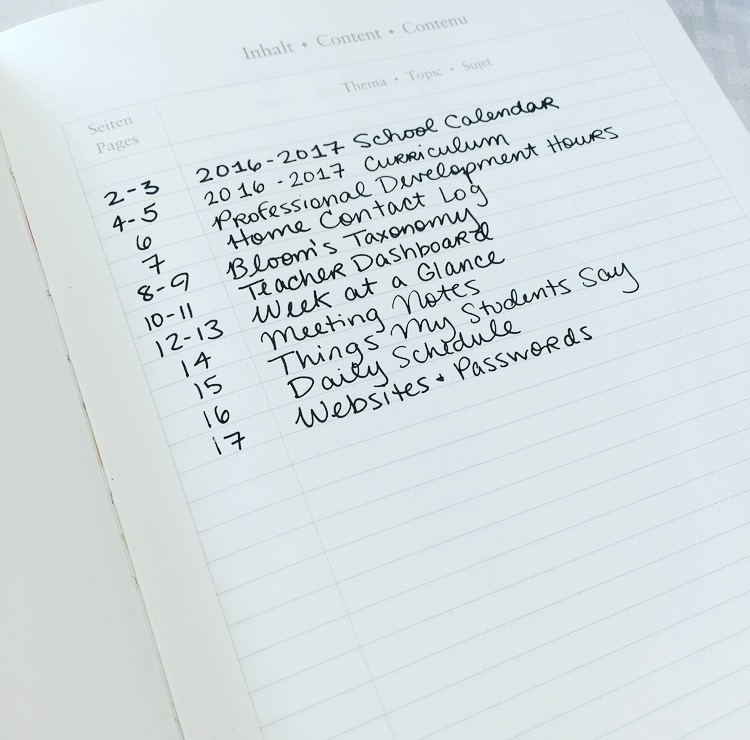 Inhalt • Content • Contenu
Seiten
Pages
Thema • Topic • Sujet
2-3 2016-2017 School Calendar
4-5 2016-2017 Curriculum
6 Professional Development Hours
7 Home Contact Log
8-9 Bloom's Taxonomy
10-11 Teacher Dashboard
12-13 Week at a Glance
14 Meeting Notes
15 Things My Students Say
16 Daily Schedule
17 Websites + Passwords